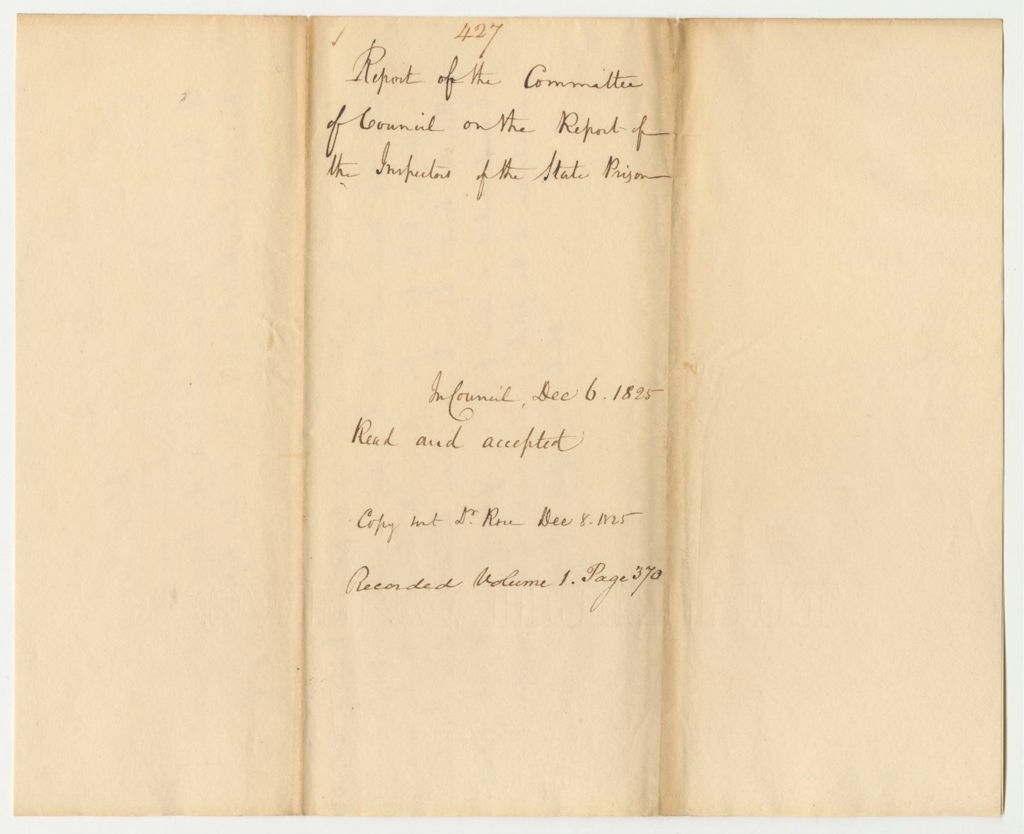 427
Report of the Committee
of Council on the Report of
the Inspectors of the State Prison
In Council, Dec 6. 1825
Read and accepted
Copy sent Dr. Rose Dec 8. 1825
Recorded Volume 1. Page 370